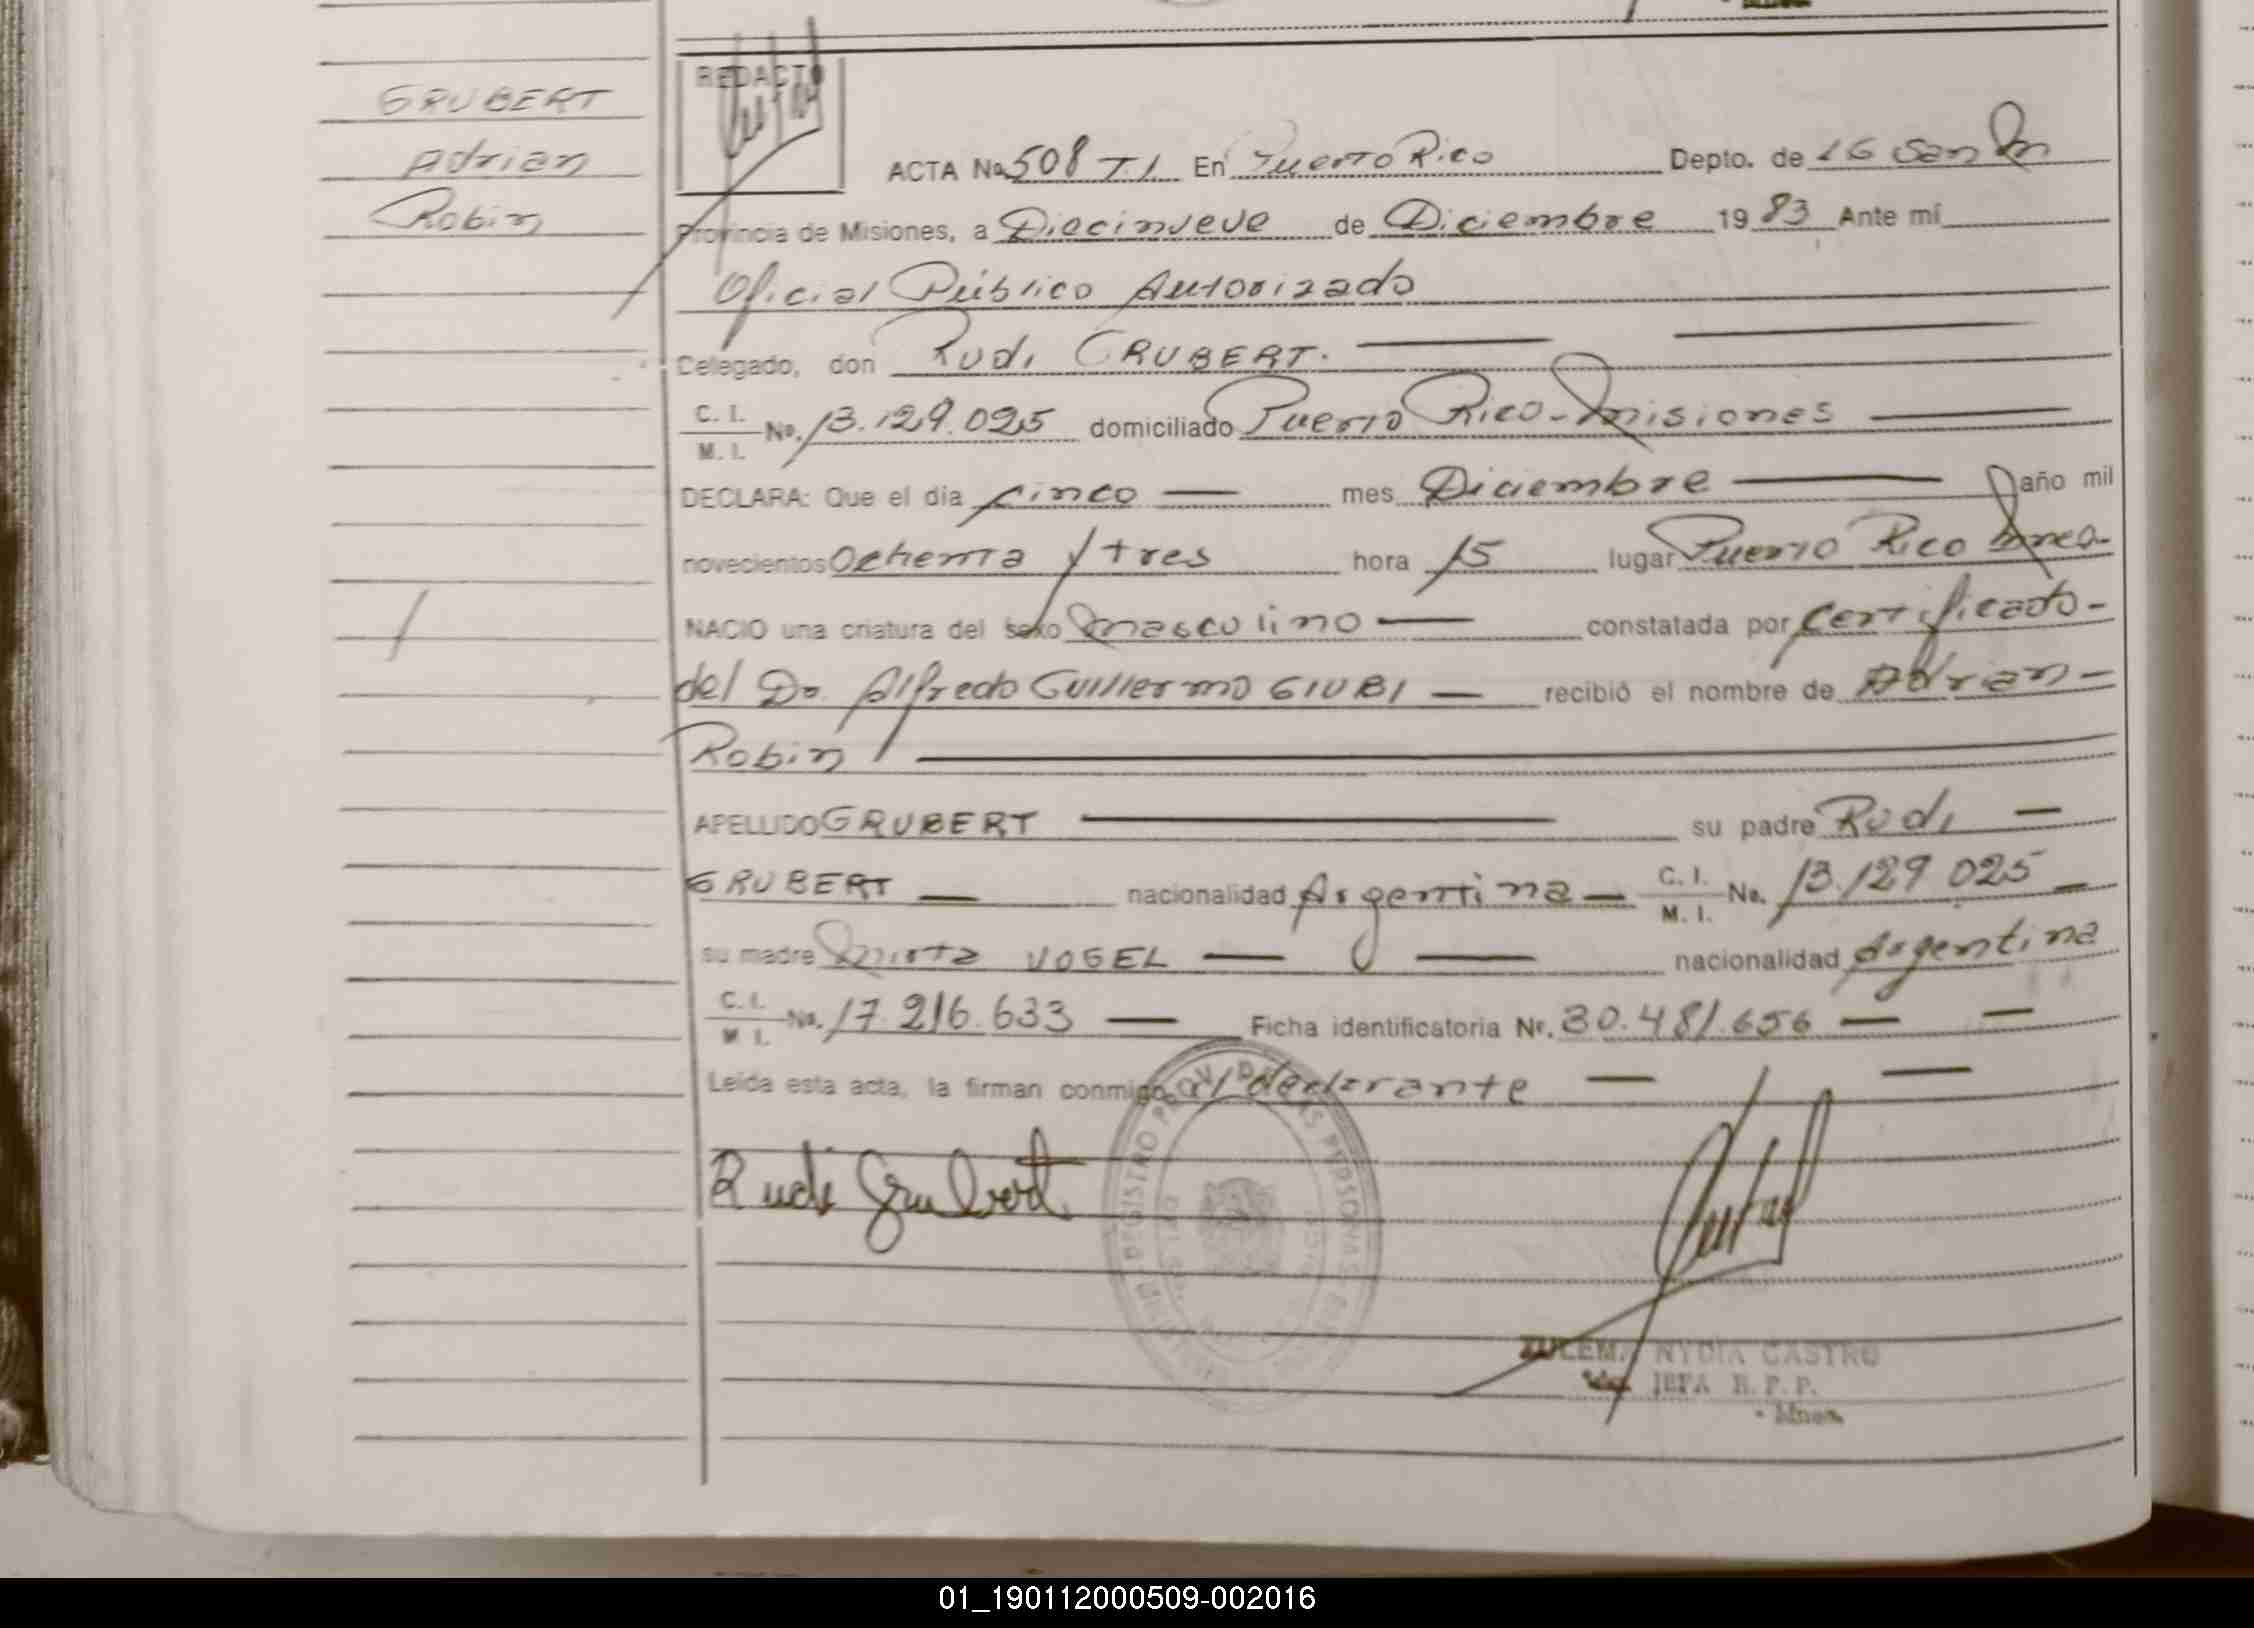 GRUBERT
Adrian
Robin
REDACTO
ACTA No 508 T.I. En Puerto Rico Depto. de LG San
Provincia de Misiones, a Diecinueve de Diciembre 1983 Ante mí
Oficial Público Autorizado
Delegado, don Rudi GRUBERT.
C. I. M. I. No. 13.129.025 domiciliado Puerto Rico-Misiones
DECLARA: Que el dia cinco mes Diciembre año mil
novecientos Ochenta y tres hora 15 lugar Puerto Rico Mnes.
NACIO una criatura del sexo masculino constatada por certificado
del Dr. Alfredo Guillermo GIUBI recibió el nombre de Adrian
Robin
APELLIDO GRUBERT su padre Rudi
GRUBERT nacionalidad Argentina C. I. M. I. No. 13.129.025
su madre Mirta VOGEL nacionalidad Argentina
C. I. M. I. No. 17.216.633 Ficha identificatoria Nº. 30.481.656
Leida esta acta, la firman conmigo el declarante
Rudi Grubert
NYDIA CASTRO
JEFA R. P. P.
Mnes.
01_190112000509-002016